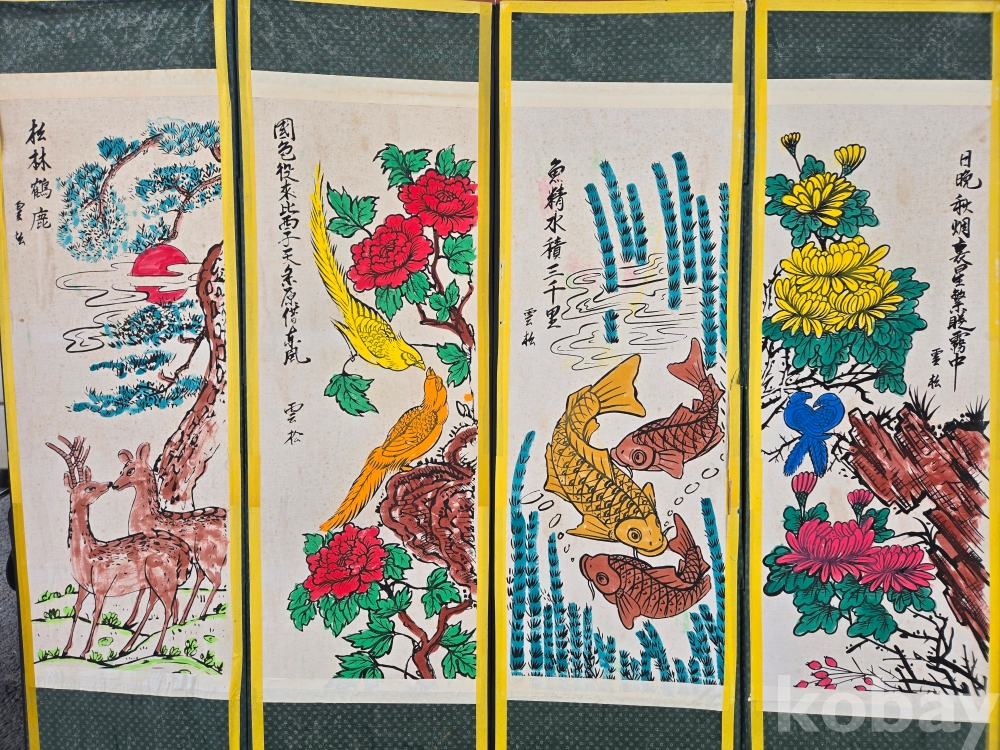 松林鶴鹿
雲松
國色從來比西子天条石借東風
雲松
魚精水積三千里
雲松
日晩秋烟裹星繁曉霧中
雲松
kobay